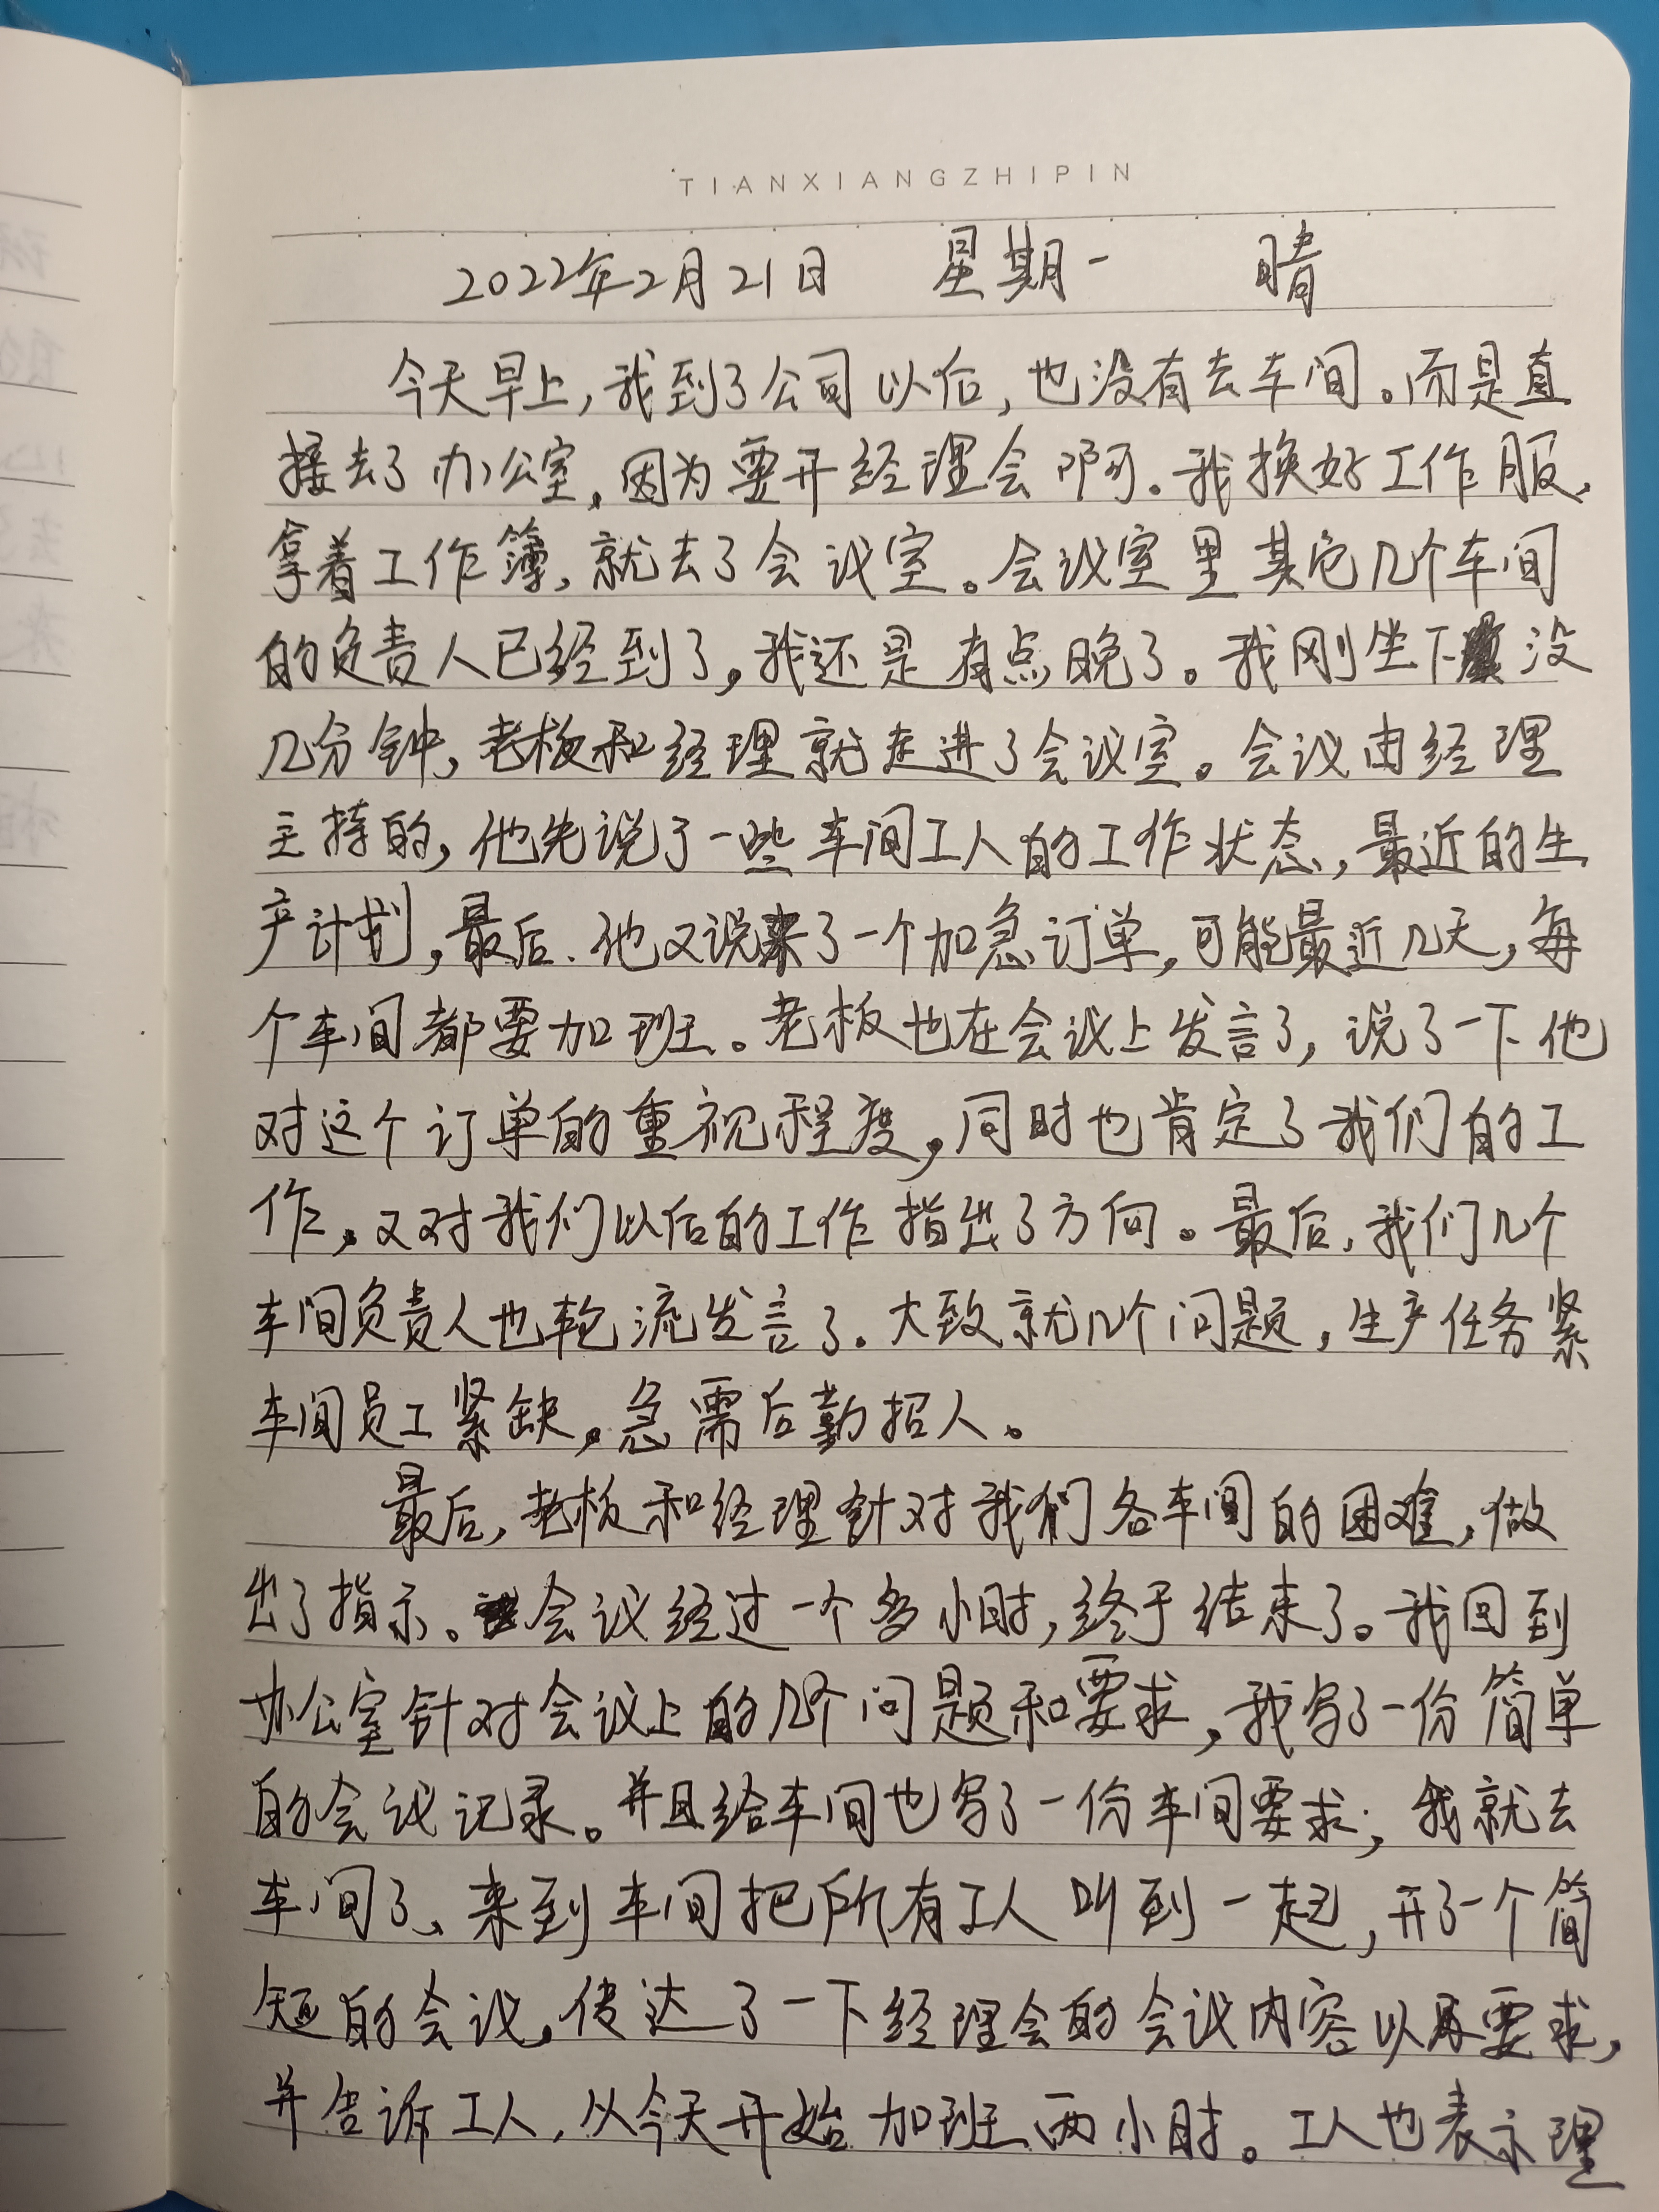 TIANXIANGZHIPIN
2022年2月21日 星期一 晴
今天早上,我到了公司以后,也没有去车间。而是直
接去了办公室,因为要开经理会啊。我换好工作服,
拿着工作簿,就去了会议室。会议室里其它几个车间
的负责人已经到了,我还是有点晚了。我刚坐下没
几分钟,老板和经理就走进了会议室。会议由经理
主持的,他先说了一些车间工人的工作状态,最近的生
产计划,最后.他又说来了一个加急订单,可能最近几天,每
个车间都要加班。老板也在会议上发言了,说了一下他
对这个订单的重视程度,同时也肯定了我们的工
作,又对我们以后的工作指出了方向。最后,我们几个
车间负责人也轮流发言了。大致就几个问题,生产任务紧
车间员工紧缺,急需后勤招人。
最后,老板和经理针对我们各车间的困难,做
出了指示。会议经过一个多小时,终于结束了。我回到
办公室针对会议上的几个问题和要求,我写了一份简单
的会议记录。并且给车间也写了一份车间要求;我就去
车间了、来到车间把所有工人叫到一起,开了一个简
短的会议,传达了一下经理会的会议内容以及要求,
并告诉工人,从今天开始加班两小时。工人也表示理